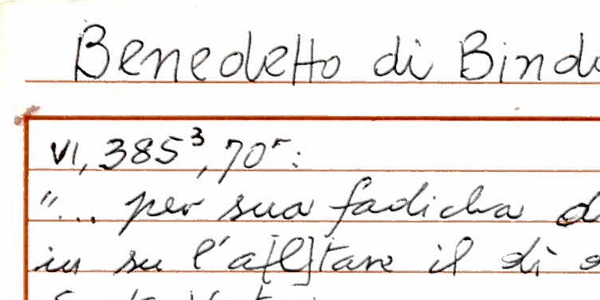 Benedetto di Bind
VI, 385³, 70ʳ:
"... per sua fadicha d
in su l'a[l]tare il di